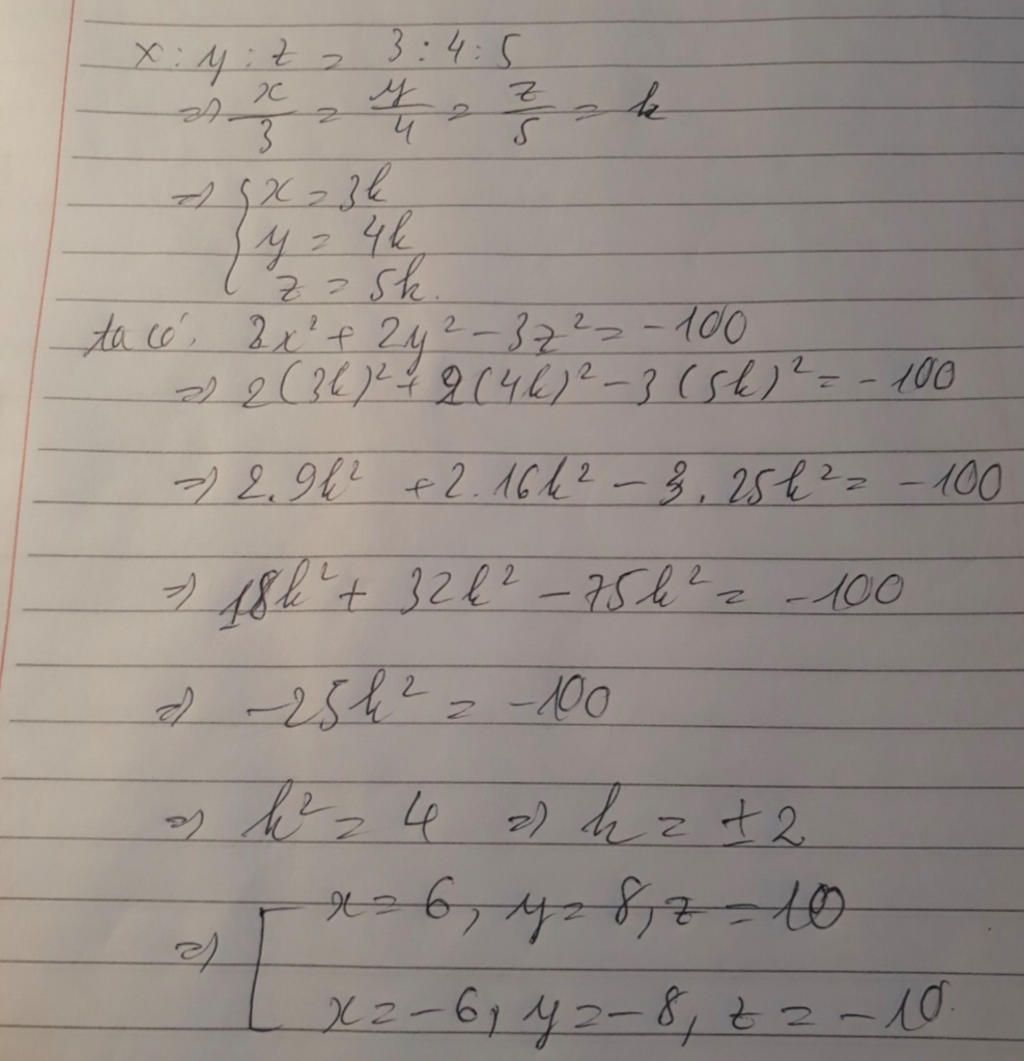 x : y : z = 3 : 4 : 5
=> x/3 = y/4 = z/5 = k
=> { x = 3k
y = 4k
z = 5k.
ta có: 2x² + 2y² - 3z² = -100
=> 2(3k)² + 2(4k)² - 3(5k)² = -100
=> 2.9k² + 2.16k² - 3.25k² = -100
=> 18k² + 32k² - 75k² = -100
=> -25k² = -100
=> k² = 4 => k = ±2
=> [ x = 6, y = 8, z = 10
x = -6, y = -8, z = -10.